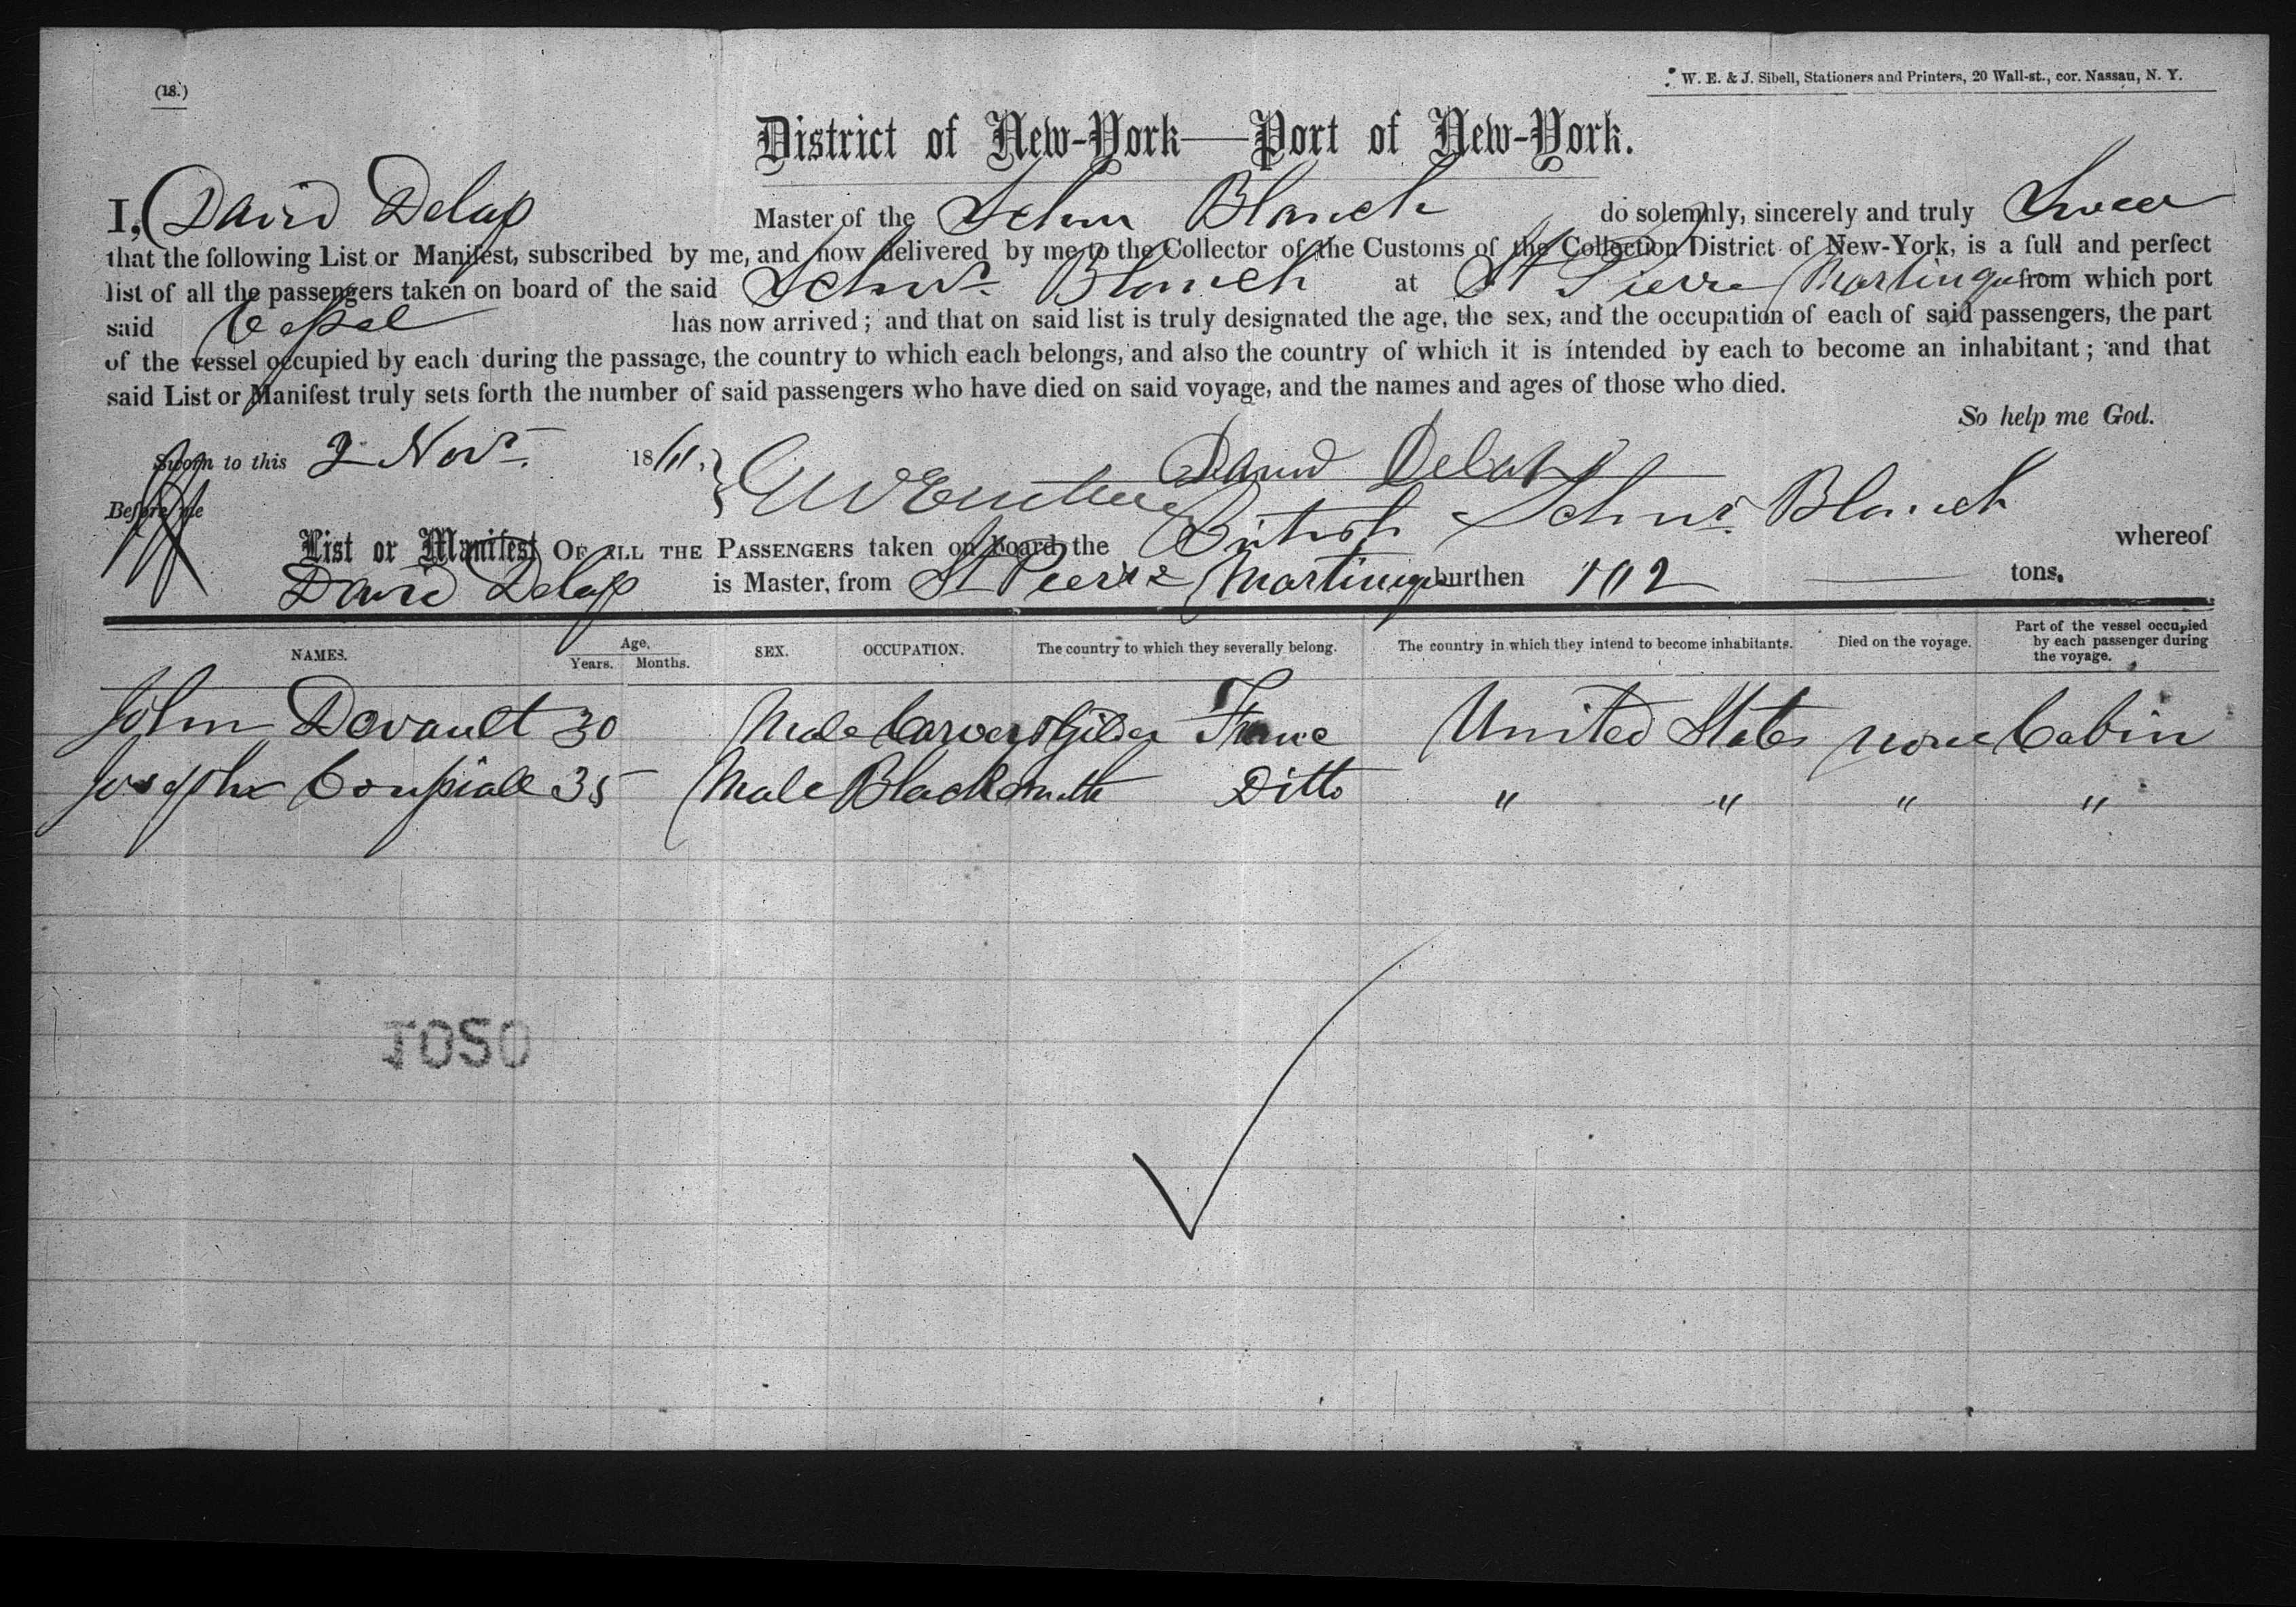 (18.)
W. E. & J. Sibell, Stationers and Printers, 20 Wall-st., cor. Nassau, N. Y.
District of New-York—Port of New-York.
I, David Delap Master of the Schnr Blanch do solemnly, sincerely and truly Swear
that the following List or Manifest, subscribed by me, and now delivered by me to the Collector of the Customs of the Collection District of New-York, is a full and perfect
list of all the passengers taken on board of the said Schnr. Blanch at St Pierre Martinque from which port
said Vessel has now arrived; and that on said list is truly designated the age, the sex, and the occupation of each of said passengers, the part
of the vessel occupied by each during the passage, the country to which each belongs, and also the country of which it is intended by each to become an inhabitant; and that
said List or Manifest truly sets forth the number of said passengers who have died on said voyage, and the names and ages of those who died.
So help me God.
Sworn to this 2 Novr. 1861, David Delap
Before me
List or Manifest OF ALL THE PASSENGERS taken on board the British Schnr Blanch whereof
David Delap is Master, from St Pierre Martinque burthen 102 tons.
NAMES. Age. Years. Months. SEX. OCCUPATION. The country to which they severally belong. The country in which they intend to become inhabitants. Died on the voyage. Part of the vessel occupied by each passenger during the voyage.
John Devault 30 Male Carver & Gilder France United States none Cabin
Joseph 35 Male Blacksmith Ditto " " " "
1050